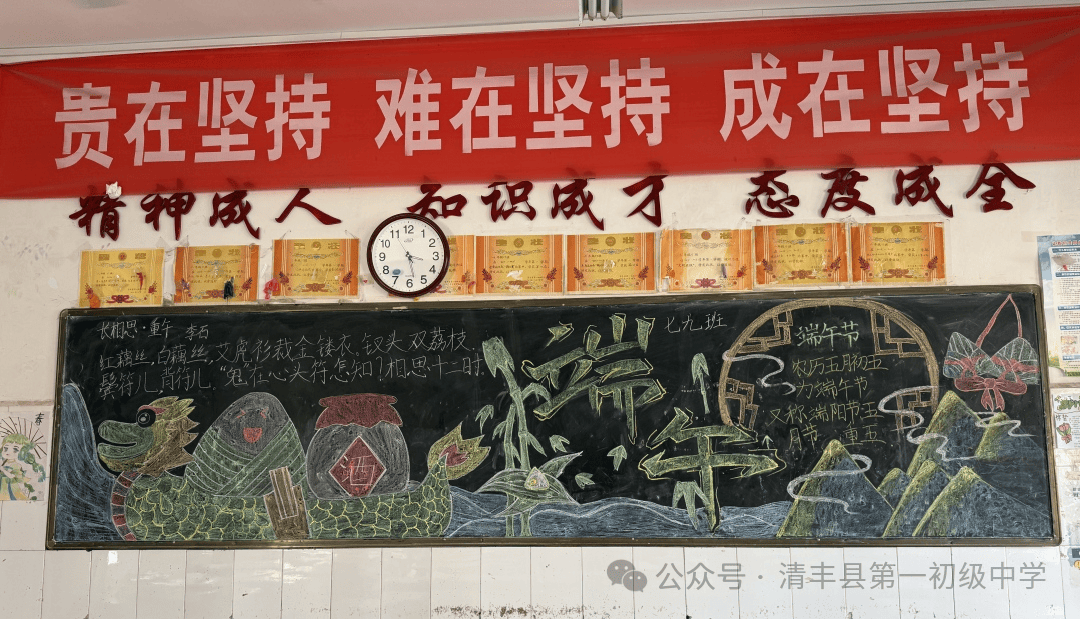 贵在坚持 难在坚持 成在坚持
精神成人 知识成才 态度成全
长相思·重午 李石
红藕丝,白藕丝,艾虎衫裁金缕衣,钗头双荔枝.
鬓符儿,背符儿,"鬼"在心头符怎知?相思十二时.
七九班
端午
酒
端午节
农历五月初五
为端午节
又称端阳节、五
月节、重五
12
11
1
10
2
9
3
8
4
7
6
5
春
公众号·清丰县第一初级中学